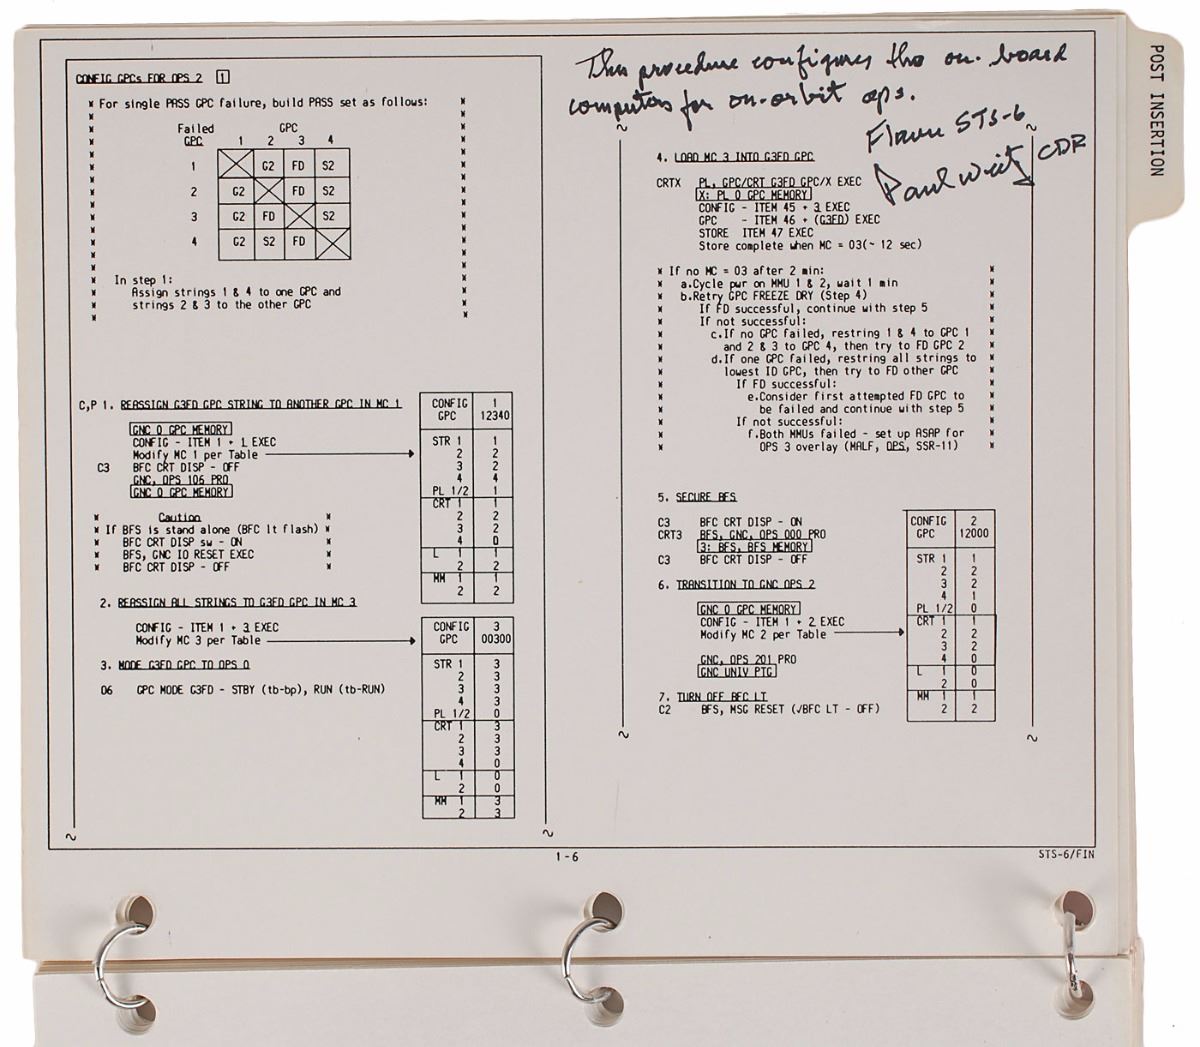 POST INSERTION
This procedure configures the on-board
computers for on-orbit ops.
Flown STS-6
Paul Weitz CDR
CONFIG GPCs FOR OPS 2 1
* For single PASS GPC failure, build PASS set as follows:
Failed GPC
GPC 1 2 3 4
1 G2 FD S2
2 G2 FD S2
3 G2 FD S2
4 G2 S2 FD
In step 1:
Assign strings 1 & 4 to one GPC and
strings 2 & 3 to the other GPC
C,P 1. REASSIGN G3FD GPC STRING TO ANOTHER GPC IN MC 1
GNC 0 GPC MEMORY
CONFIG - ITEM 1 + 1 EXEC
Modify MC 1 per Table
C3 BFC CRT DISP - OFF
GNC, OPS 106 PRO
GNC 0 GPC MEMORY
Caution
* If BFS is stand alone (BFC lt flash) *
* BFC CRT DISP sw - ON *
* BFS, GNC IO RESET EXEC *
* BFC CRT DISP - OFF *
CONFIG 1
GPC 12340
STR 1 1
2 2
3 2
4 4
PL 1/2 1
CRT 1 1
2 2
3 2
4 0
L 1 1
2 2
MM 1 1
2 2
2. REASSIGN ALL STRINGS TO G3FD GPC IN MC 3
CONFIG - ITEM 1 + 3 EXEC
Modify MC 3 per Table
3. MODE G3FD GPC TO OPS 0
O6 GPC MODE G3FD - STBY (tb-bp), RUN (tb-RUN)
CONFIG 3
GPC 00300
STR 1 3
2 3
3 3
4 3
PL 1/2 0
CRT 1 3
2 3
3 3
4 0
L 1 0
2 0
MM 1 3
2 3
4. LOAD MC 3 INTO G3FD GPC
CRTX PL, GPC/CRT G3FD GPC/X EXEC
X: PL 0 GPC MEMORY
CONFIG - ITEM 45 + 3 EXEC
GPC - ITEM 46 + (G3FD) EXEC
STORE ITEM 47 EXEC
Store complete when MC = 03(~ 12 sec)
* If no MC = 03 after 2 min: *
* a.Cycle pwr on MMU 1 & 2, wait 1 min *
* b.Retry GPC FREEZE DRY (Step 4) *
* If FD successful, continue with step 5 *
* If not successful: *
* c.If no GPC failed, restring 1 & 4 to GPC 1 *
* and 2 & 3 to GPC 4, then try to FD GPC 2 *
* d.If one GPC failed, restring all strings to *
* lowest ID GPC, then try to FD other GPC *
* If FD successful: *
* e.Consider first attempted FD GPC to *
* be failed and continue with step 5 *
* If not successful: *
* f.Both MMUs failed - set up ASAP for *
* OPS 3 overlay (MALF, OPS, SSR-11) *
5. SECURE BFS
C3 BFC CRT DISP - ON
CRT3 BFS, GNC, OPS 000 PRO
3: BFS, BFS MEMORY
C3 BFC CRT DISP - OFF
6. TRANSITION TO GNC OPS 2
GNC 0 GPC MEMORY
CONFIG - ITEM 1 + 2 EXEC
Modify MC 2 per Table
GNC, OPS 201 PRO
GNC UNIV PTG
7. TURN OFF BFC LT
C2 BFS, MSG RESET (√BFC LT - OFF)
CONFIG 2
GPC 12000
STR 1 1
2 2
3 2
4 1
PL 1/2 0
CRT 1 1
2 2
3 2
4 0
L 1 0
2 0
MM 1 1
2 2
1-6
STS-6/FIN